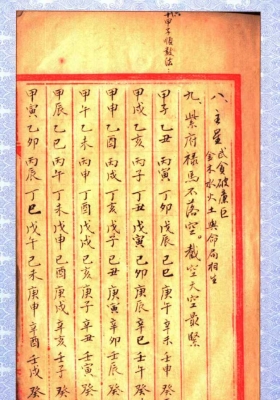 八、主星
武貪破廉巨
金木水火土與命局相生
九、紫府祿馬不落空。截空天空最緊
六十甲子順數法：
甲子乙丑丙寅丁卯戊辰己巳庚午辛未壬申癸
甲戌乙亥丙子丁丑戊寅己卯庚辰辛巳壬午癸
甲申乙酉丙戌丁亥戊子己丑庚寅辛卯壬辰癸
甲午乙未丙申丁酉戊戌己亥庚子辛丑壬寅癸
甲辰乙巳丙午丁未戊申己酉庚戌辛亥壬子癸
甲寅乙卯丙辰丁巳戊午己未庚申辛酉壬戌癸